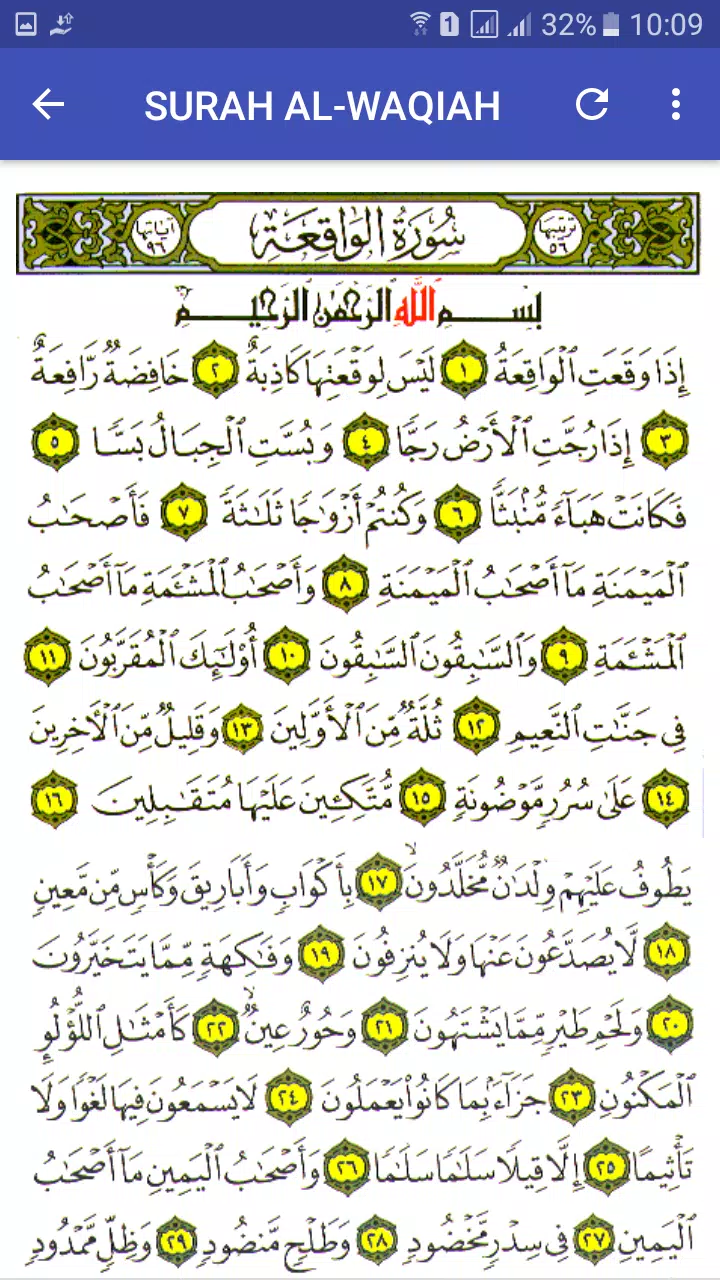 1 32% 10:09
SURAH AL-WAQIAH
ترتيبها ٥٦ سُورَةُ الوَاقِعَةِ آياتها ٩٦
بِسْمِ اللَّهِ الرَّحْمَٰنِ الرَّحِيمِ
إِذَا وَقَعَتِ ٱلْوَاقِعَةُ ١ لَيْسَ لِوَقْعَتِهَا كَاذِبَةٌ ٢ خَافِضَةٌ رَّافِعَةٌ
٣ إِذَا رُجَّتِ ٱلْأَرْضُ رَجًّا ٤ وَبُسَّتِ ٱلْجِبَالُ بَسًّا ٥
فَكَانَتْ هَبَآءً مُّنۢبَثًّا ٦ وَكُنتُمْ أَزْوَٰجًا ثَلَٰثَةً ٧ فَأَصْحَٰبُ
ٱلْمَيْمَنَةِ مَآ أَصْحَٰبُ ٱلْمَيْمَنَةِ ٨ وَأَصْحَٰبُ ٱلْمَشْـَٔمَةِ مَآ أَصْحَٰبُ
ٱلْمَشْـَٔمَةِ ٩ وَٱلسَّٰبِقُونَ ٱلسَّٰبِقُونَ ١٠ أُو۟لَٰٓئِكَ ٱلْمُقَرَّبُونَ ١١
فِى جَنَّٰتِ ٱلنَّعِيمِ ١٢ ثُلَّةٌ مِّنَ ٱلْأَوَّلِينَ ١٣ وَقَلِيلٌ مِّنَ ٱلْـَٔاخِرِينَ
١٤ عَلَىٰ سُرُرٍ مَّوْضُونَةٍ ١٥ مُّتَّكِـِٔينَ عَلَيْهَا مُتَقَٰبِلِينَ ١٦
يَطُوفُ عَلَيْهِمْ وِلْدَٰنٌ مُّخَلَّدُونَ ١٧ بِأَكْوَابٍ وَأَبَارِيقَ وَكَأْسٍ مِّن مَّعِينٍ
١٨ لَّا يُصَدَّعُونَ عَنْهَا وَلَا يُنزِفُونَ ١٩ وَفَٰكِهَةٍ مِّمَّا يَتَخَيَّرُونَ
٢٠ وَلَحْمِ طَيْرٍ مِّمَّا يَشْتَهُونَ ٢١ وَحُورٌ عِينٌ ٢٢ كَأَمْثَٰلِ ٱللُّؤْلُؤِ
ٱلْمَكْنُونِ ٢٣ جَزَآءًۢ بِمَا كَانُوا۟ يَعْمَلُونَ ٢٤ لَا يَسْمَعُونَ فِيهَا لَغْوًا وَلَا
تَأْثِيمًا ٢٥ إِلَّا قِيلًا سَلَٰمًا سَلَٰمًا ٢٦ وَأَصْحَٰبُ ٱلْيَمِينِ مَآ أَصْحَٰبُ
ٱلْيَمِينِ ٢٧ فِى سِدْرٍ مَّخْضُودٍ ٢٨ وَطَلْحٍ مَّنضُودٍ ٢٩ وَظِلٍّ مَّمْدُودٍ